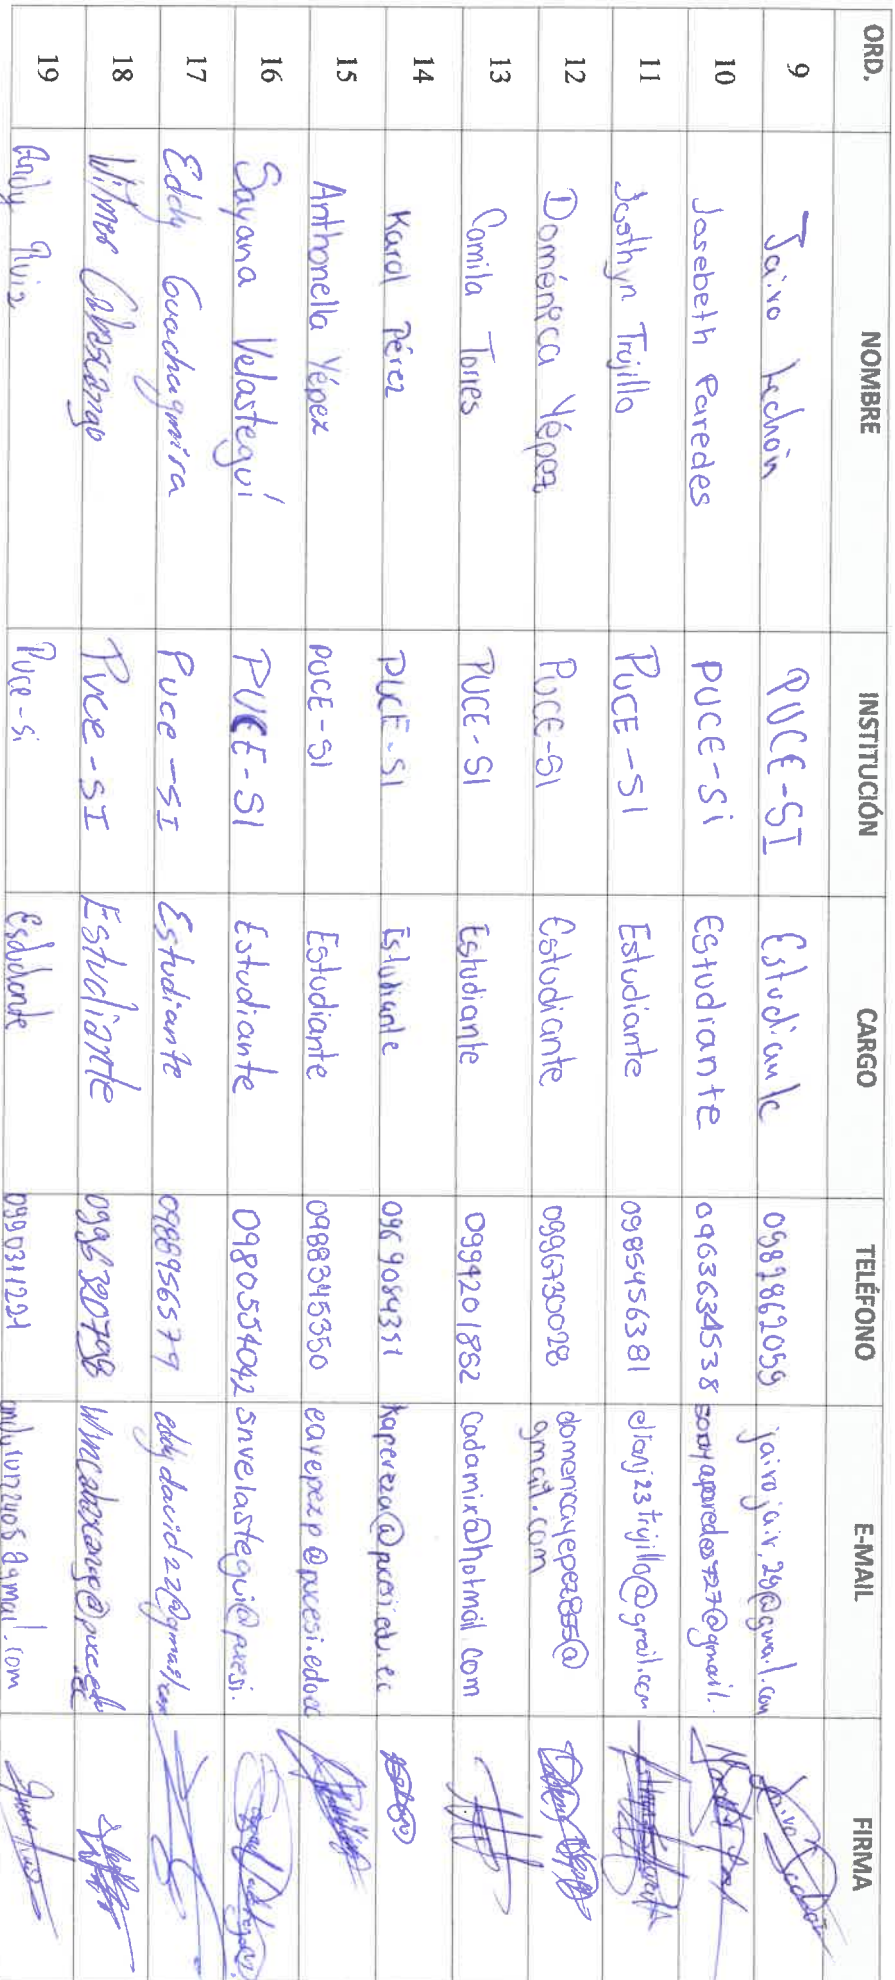 ORD. NOMBRE INSTITUCIÓN CARGO TELÉFONO E-MAIL FIRMA
9 Jairo Lechón PUCE-SI Estudiante 0982862059 jairojair.28@gmail.com
10 Josebeth Paredes PUCE-Si Estudiante 0963634538
11 Josthyn Trujillo PUCE-SI Estudiante 0985456381 elianj23trujillo@gmail.com
12 Doménica Yépez PUCE-SI Estudiante 0996730028 domenicayepez855@
gmail.com
13 Camila Torres PUCE-SI Estudiante 0994201862 Cadamix@hotmail.com
14 Karol Pérez PUCE-SI Estudiante 0969084351 kapereza@pucesi.edu.ec
15 Anthonella Yépez PUCE-SI Estudiante 0988345350 eayepezp@pucesi.edu.ec
16 Sayana Velasteguí PUCE-SI Estudiante 0980554042 snvelastegui@pucesi.
17 Eddy Guachagmira Puce-SI Estudiante 0988956579 eddydavid22@gmail.com
18 Wilmer Cabascango Puce-SI Estudiante 0996320798
19 Andy Ruiz Puce-si Esdudante 0990311221